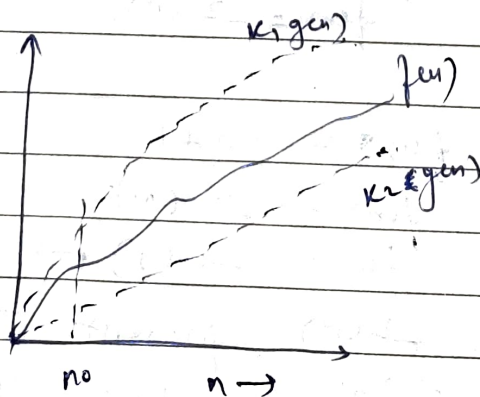 K1 g(n)
f(n)
K2 (g(n))
n0
n →